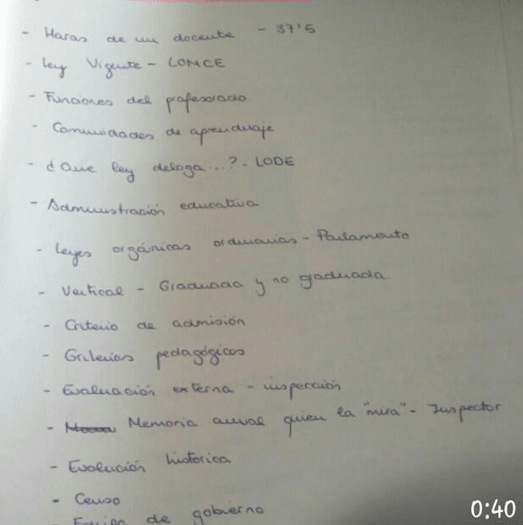 - Horas de un docente - 37'5
- Ley Vigente - LOMCE
- Funciones del profesorado
- Comunidades de aprendizaje
- ¿Que ley deloga...? - LODE
- Administración educativa
- Leyes orgánicas ordinarias - Parlamento
- Vertical - Graduada y no graduada.
- Criterio de admisión
- Criterios pedagógicos
- Evaluación externa - inspección
- Memoria anual quien la "mira" - Inspector
- Evolución histórica
- Censo
- Equipo de gobierno
0:40